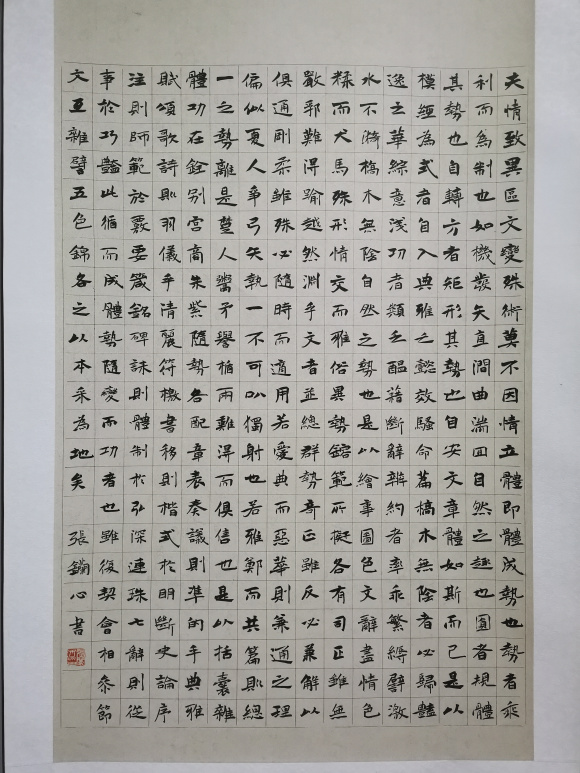 夫情致異區文變殊術莫不因情立體即體成勢也勢者乘
利而為制也如機發矢直澗曲湍回自然之趣也圓者規體
其勢也自轉方者矩形其勢也自安文章體如斯而已是以
模經為式者自入典雅之懿效騷命篇槁木無陰者必歸豔
逸之華綜意淺切者類乏醞藉斷辭辨約者率乖繁縟譬激
水不漪槁木無陰自然之勢也是以繪事圖色文辭盡情色
糅而犬馬殊形情交而雅俗異勢鎔範所擬各有司匠雖無
嚴郛難得踰越然淵乎文者並總群勢奇正雖反必兼解以
俱通剛柔雖殊必隨時而適用若愛典而惡華則兼通之理
偏似夏人爭弓矢執一不可以獨射也若雅鄭而共篇則總
一之勢離是楚人鬻矛譽楯兩難得而俱信也是以括囊雜
體功在銓別宮商朱紫隨勢各配章表奏議則準的乎典雅
賦頌歌詩則羽儀乎清麗符檄書移則楷式於明斷史論序
注則師範於覈要箴銘碑誄則體制於弘深連珠七辭則從
事於巧豔此循而成體勢隨變而功者也雖復契會相參節
文互雜譬五色錦各之以本采為地矣 張心書